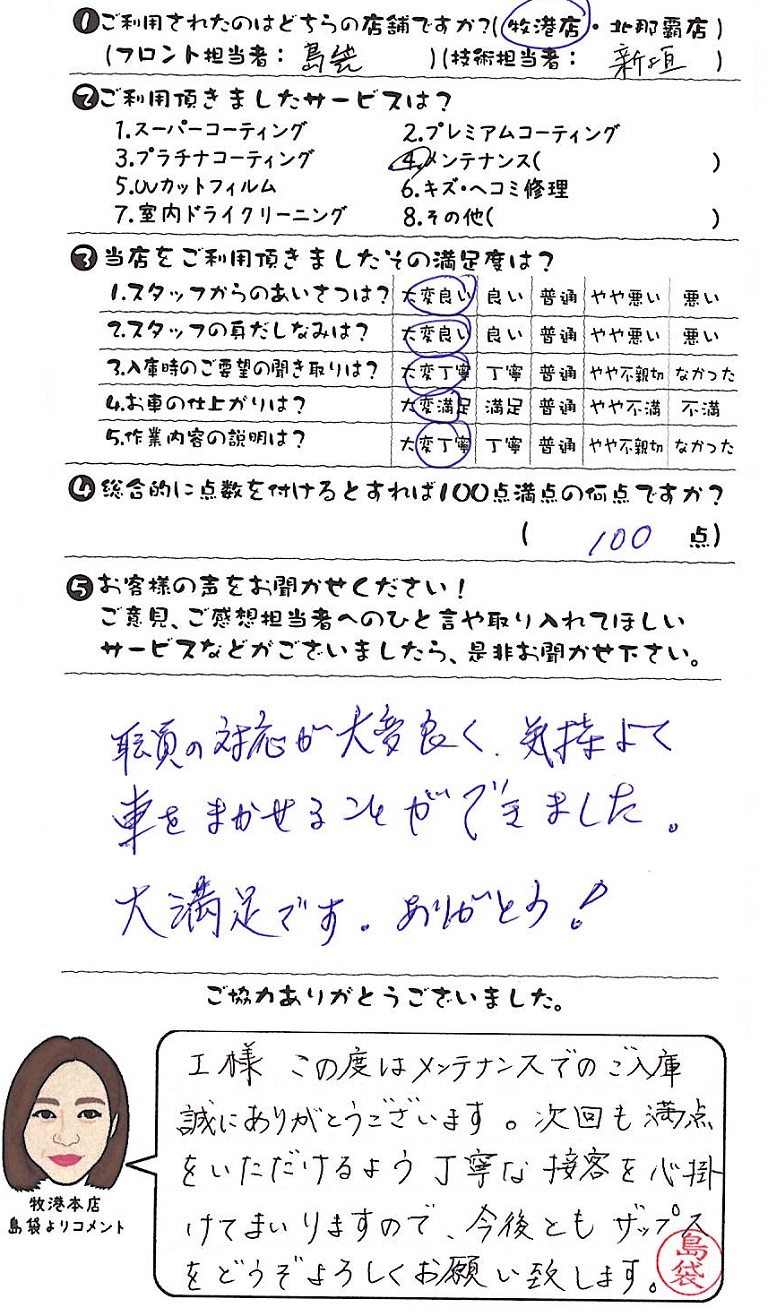 ❶ご利用されたのはどちらの店舗ですか?(牧港店・北那覇店)
(フロント担当者: 島袋 )(技術担当者: 新垣 )
❷ご利用頂きましたサービスは?
1.スーパーコーティング 2.プレミアムコーティング
3.プラチナコーティング 4.メンテナンス( )
5.UVカットフィルム 6.キズ・ヘコミ修理
7.室内ドライクリーニング 8.その他( )
❸当店をご利用頂きましたその満足度は?
1.スタッフからのあいさつは? 大変良い 良い 普通 やや悪い 悪い
2.スタッフの身だしなみは? 大変良い 良い 普通 やや悪い 悪い
3.入庫時のご要望の聞き取りは? 大変丁寧 丁寧 普通 やや不親切 なかった
4.お車の仕上がりは? 大変満足 満足 普通 やや不満 不満
5.作業内容の説明は? 大変丁寧 丁寧 普通 やや不親切 なかった
❹総合的に点数を付けるとすれば100点満点の何点ですか?
( 100 点)
❺お客様の声をお聞かせください!
ご意見、ご感想担当者へのひと言や取り入れてほしい
サービスなどがございましたら、是非お聞かせ下さい。
職員の対応が大変良く、気持よく
車をまかせることができました。
大満足です。ありがとう!
ご協力ありがとうございました。
I様 この度はメンテナンスでのご入庫
誠にありがとうございます。次回も満点
をいただけるよう丁寧な接客を心掛
けてまいりますので、今後ともザップス
をどうぞよろしくお願い致します。
島袋
牧港本店
島袋よりコメント